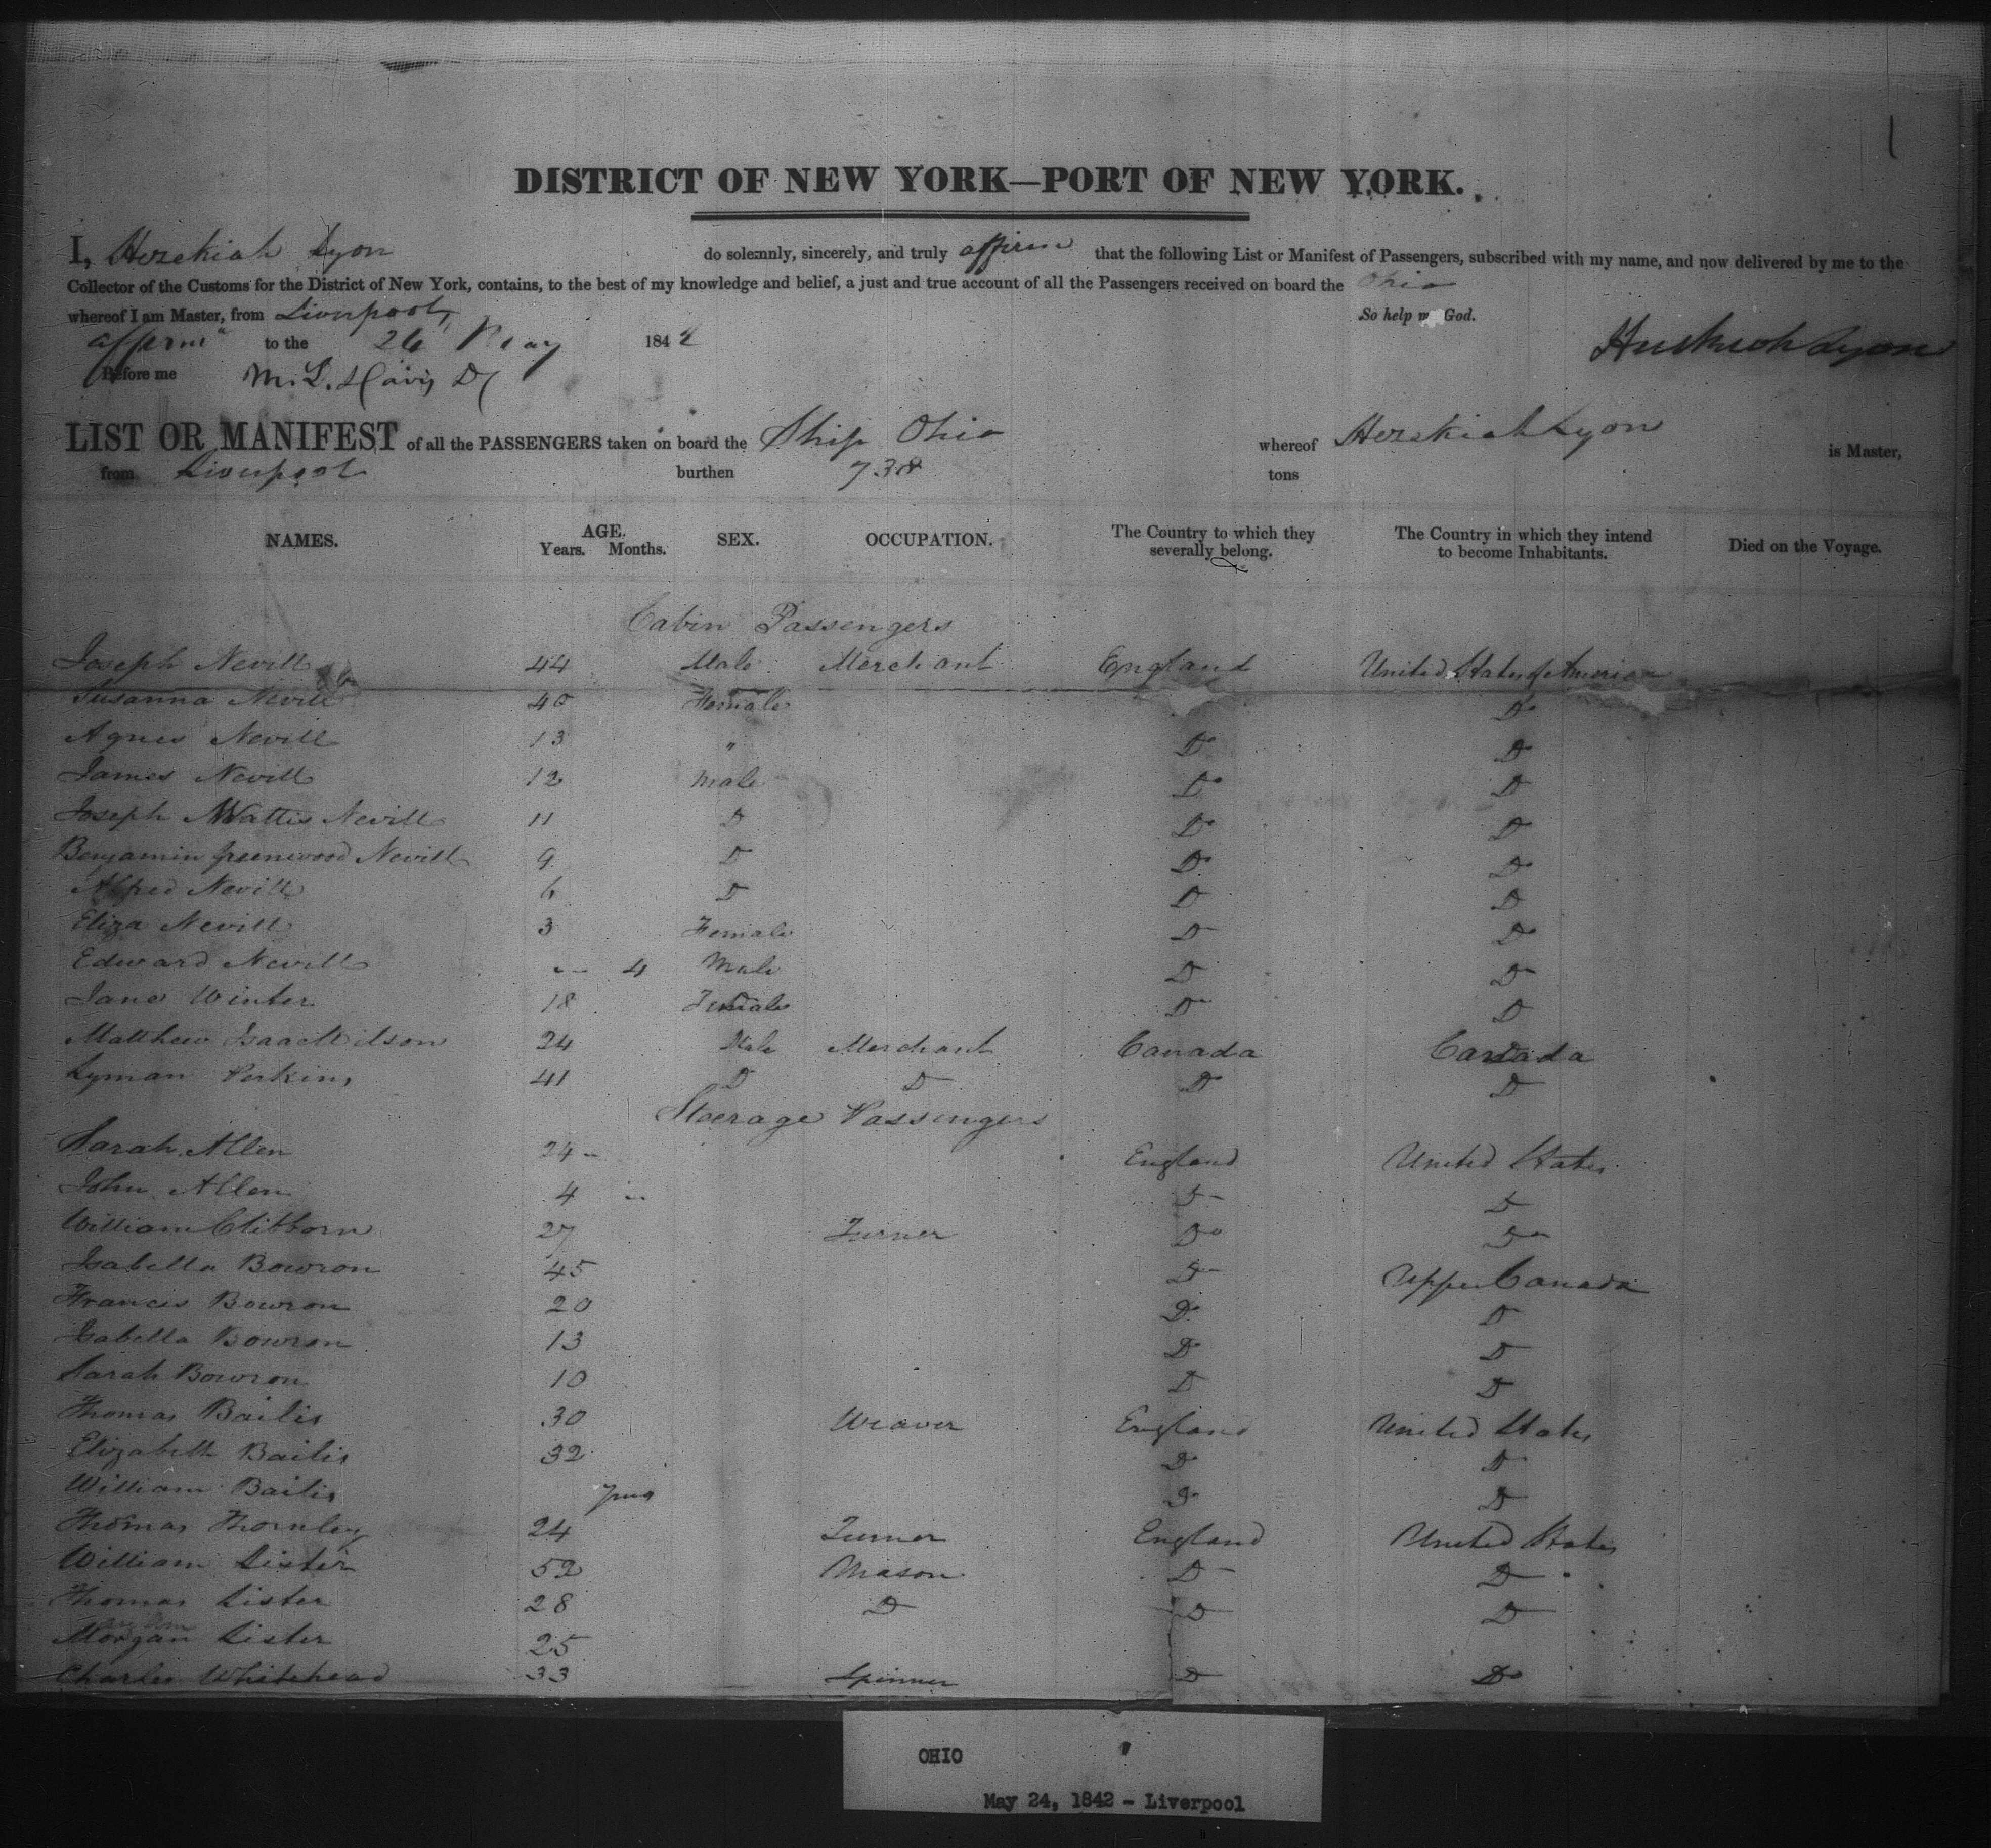 DISTRICT OF NEW YORK—PORT OF NEW YORK.
I, Hezekiah Lyon do solemnly, sincerely, and truly affirm that the following List or Manifest of Passengers, subscribed with my name, and now delivered by me to the
Collector of the Customs for the District of New York, contains, to the best of my knowledge and belief, a just and true account of all the Passengers received on board the Ohio
whereof I am Master, from Liverpool, So help m God.
affirm to the 26 May 1842 Hezekiah Lyon
Before me M. L. Davis
LIST OR MANIFEST of all the PASSENGERS taken on board the Ship Ohio whereof Hezekiah Lyon is Master,
from Liverpool burthen 738 tons
NAMES. AGE. Years. Months. SEX. OCCUPATION. The Country to which they severally belong. The Country in which they intend to become Inhabitants. Died on the Voyage.
Cabin Passengers
Joseph Nevill 44 Male Merchant England United States of America
Susanna Nevill 40 Female Do
Agnes Nevill 13 " Do Do
James Nevill 12 Male Do D
Joseph Wattis Nevill 11 D Do D
Benjamin Greenwood Nevill 9 D Do Do
Alfred Nevill 6 D D D
Eliza Nevill 3 Female D Do
Edward Nevill -- 4 Male D D
Jane Winter 18 Female D D
Matthew Isaac Wilson 24 Male Merchant Canada Canada
Lyman Perkins 41 D D Do D
Steerage Passengers
Sarah Allen 24 - England United States
John Allen 4 -- D D
William Clibborn 27 Turner Do Do
Isabella Bowron 45 D Upper Canada
Francis Bowron 20 D D
Isabella Bowron 13 D D
Sarah Bowron 10 D D
Thomas Bailis 30 Weaver England United States
Elizabeth Bailis 32 D D
William Bailis 7 mo D D
Thomas Thornley 24 Turner England United States
William Lister 52 Mason D D
Thomas Lister 28 D D D
Morgan Lister 25
Charles Whitehead 33 Spinner D Do
OHIO
May 24, 1842 - Liverpool